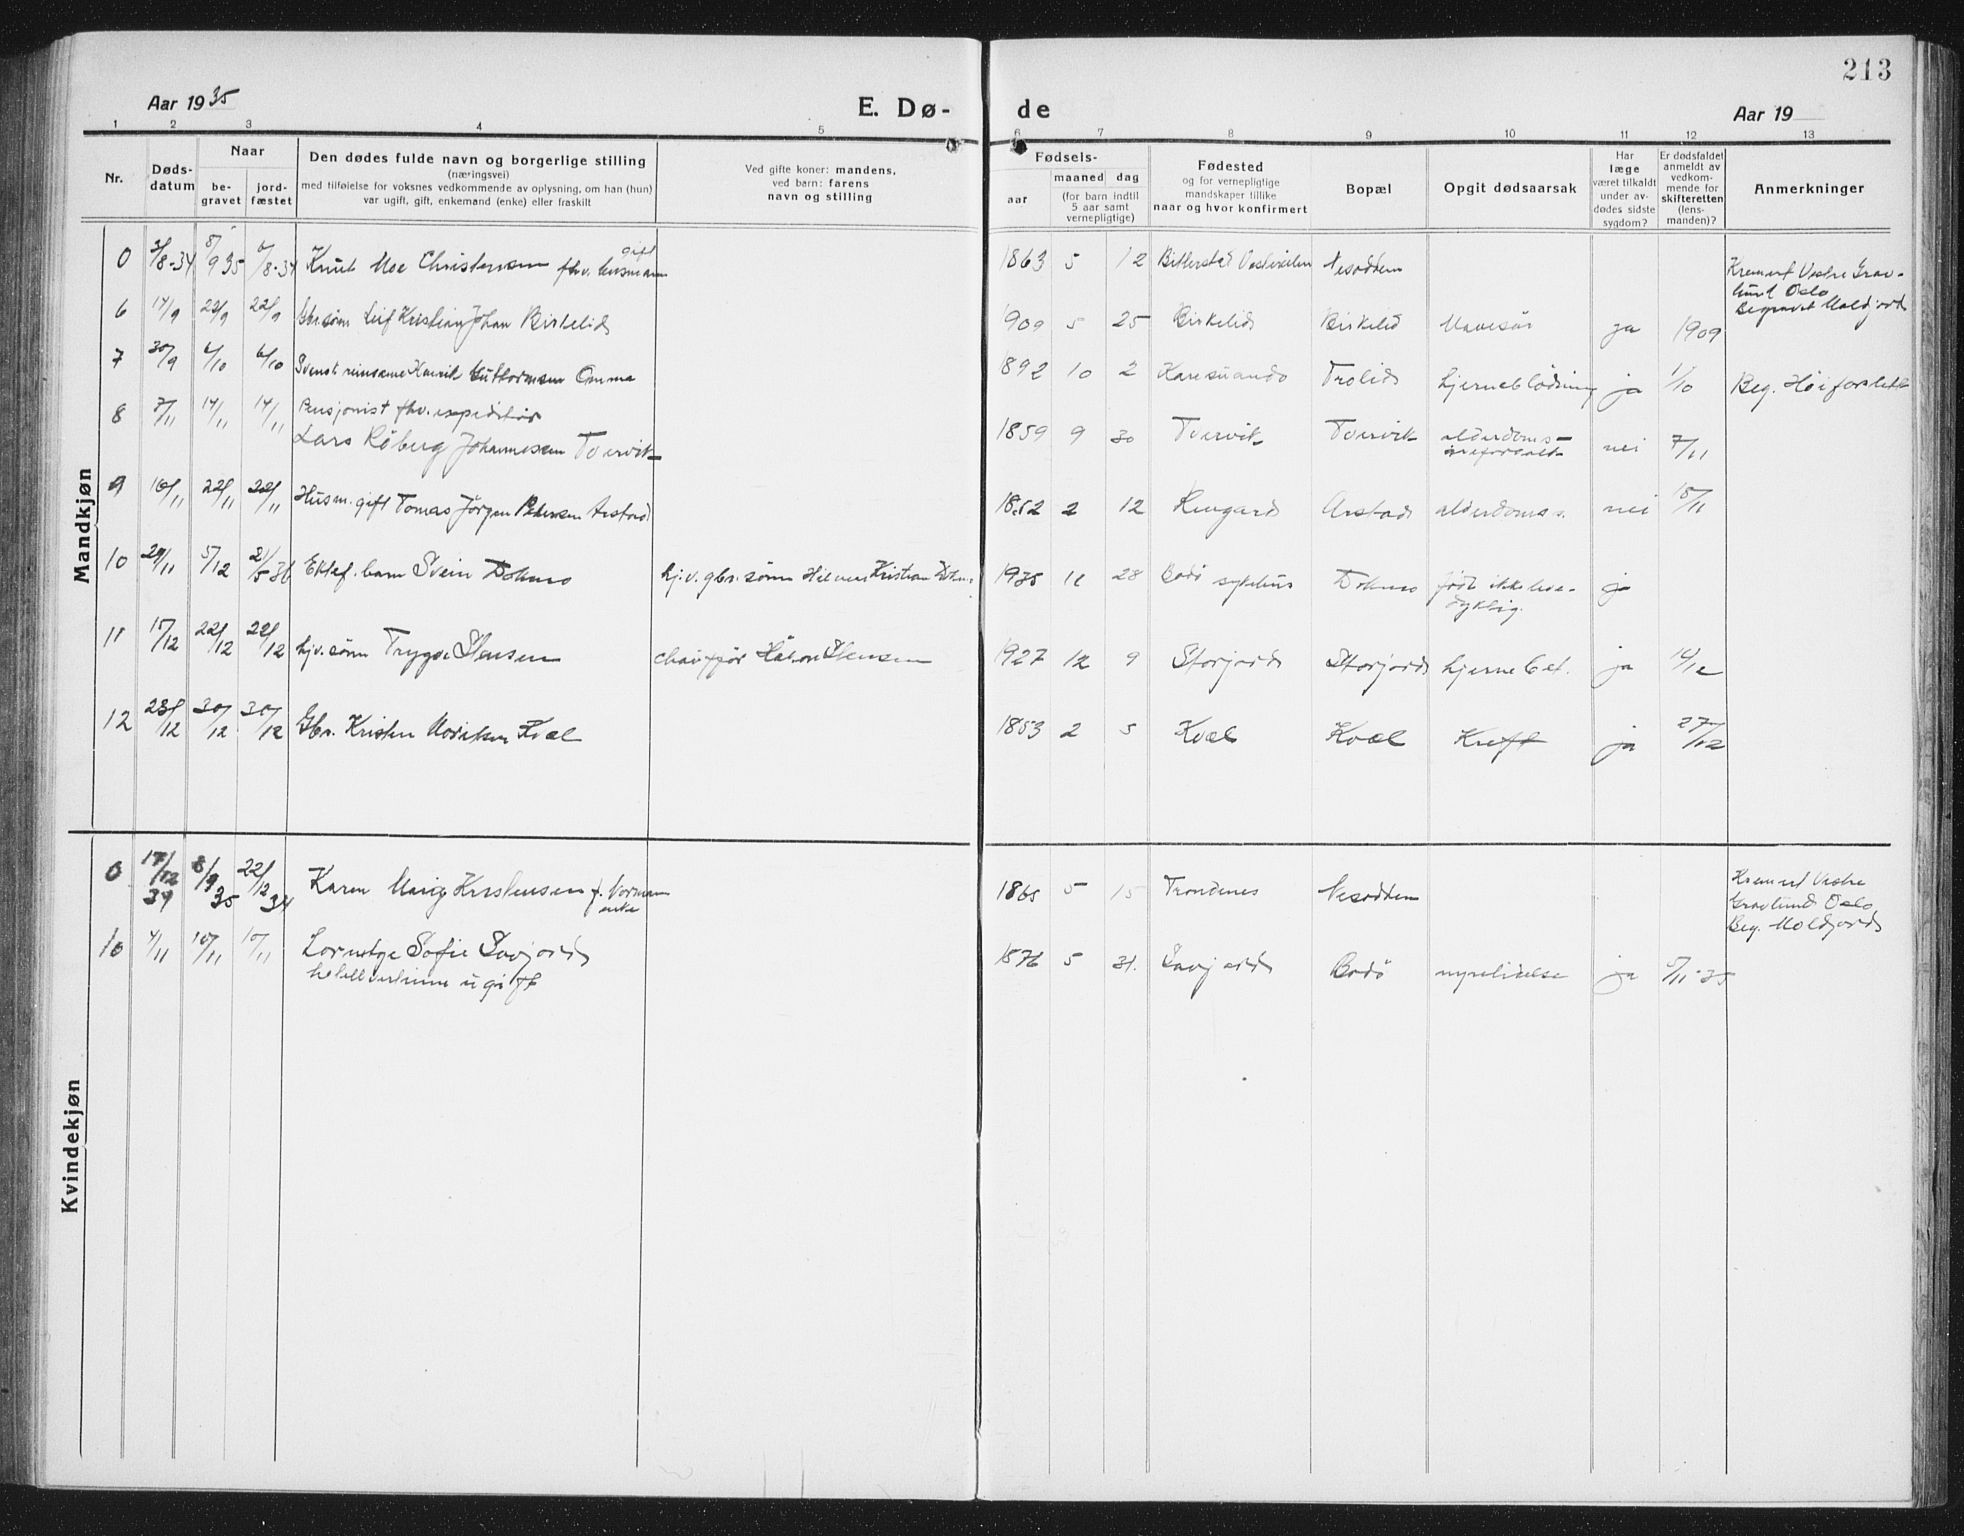 213
Aar 1935
E. Dø-
de
Aar 19
1 2 3 4 5 6 7 8 9 10 11 12 13
Nr.
Døds-
datum
Naar
be-
gravet
jord-
fæstet
Den dødes fulde navn og borgerlige stilling
(næringsvei)
med tilføielse for voksnes vedkommende av oplysning, om han (hun)
var ugift, gift, enkemand (enke) eller fraskilt
Ved gifte koner: mandens,
ved barn: farens
navn og stilling
Fødsels-
aar
maaned dag
(for barn indtil
5 aar samt
vernepligtige)
Fødested
og for vernepligtige
mandskaper tillike
naar og hvor konfirmert
Bopæl
Opgit dødsaarsak
Har
læge
været tilkaldt
under av-
dødes sidste
sygdom?
Er dødsfaldet
anmeldt av
vedkom-
mende for
skifteretten
(lens-
manden)?
Anmerkninger
Mandkjøn
0 3/8-34 8/9 35 6/8-34 Knut Moe Christensen fhv. husmann gift 1863 5 12 Nesodden
Kremert Vestre Grav-
lund Oslo
Begravet Moldjord
6 14/9 22/9 22/9 Gbr.sønn Leif Kristian Johan Birkelid 1909 5 25 Birkelid Birkelid Mavesår ja 1909
7 30/9 6/10 6/10 Svensk reinsame Henrik Guttormsen Omma 1892 10 2 Karesuando Trolid hjerneblødning ja 1/10 Beg. Høiforslett
8 7/11 14/11 14/11 Pensjonist fhv. expeditør
Lars Røberg Johannessen Tvervik 1859 9 30 Tvervik Tvervik alderdoms- nei 7/11
9 16/11 22/11 22/11 Husm. gift Tomas Jørgen Pedersen Arstad 1852 2 12 Arstad alderdoms s. nei 18/11
10 29/11 5/12 21/5 36 Ektef. barn Svein Dokmo hj.v. gbr. sønn Hilmar Kristian Dokmo 1935 11 28 Bodø sykehus Dokmo født ikke leve-
dyktig. ja
11 15/12 22/12 22/12 hjv. sønn Trygve Stensen chauffør Håkon Stensen 1927 12 9 Storjord Storjord hjernebet. ja 16/12
12 23/12 30/12 30/12 Gbr. Kristen Moritsen Kvæl 1853 2 5 Kvæl Kvæl Kreft ja 27/12
Kvindekjøn
0 17/12 34 8/9 35 22/12 34 Karen Marie Kristensen f. Normann
enke 1865 5 15 Trondenes Nesodden
Kremert Vestre
Gravlund Oslo
Beg. Moldjord
10 4/11 10/11 10/11 Lorentze Sofie Savjord
hotellvertinne ugift 1876 5 31. Savjord Bodø nyrelidelse ja 5/11-35